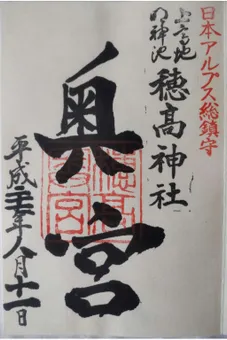 日本アルプス総鎮守
上高地
明神池
穂高神社
奥宮
穂高
奥宮
平成二十五年八月十一日